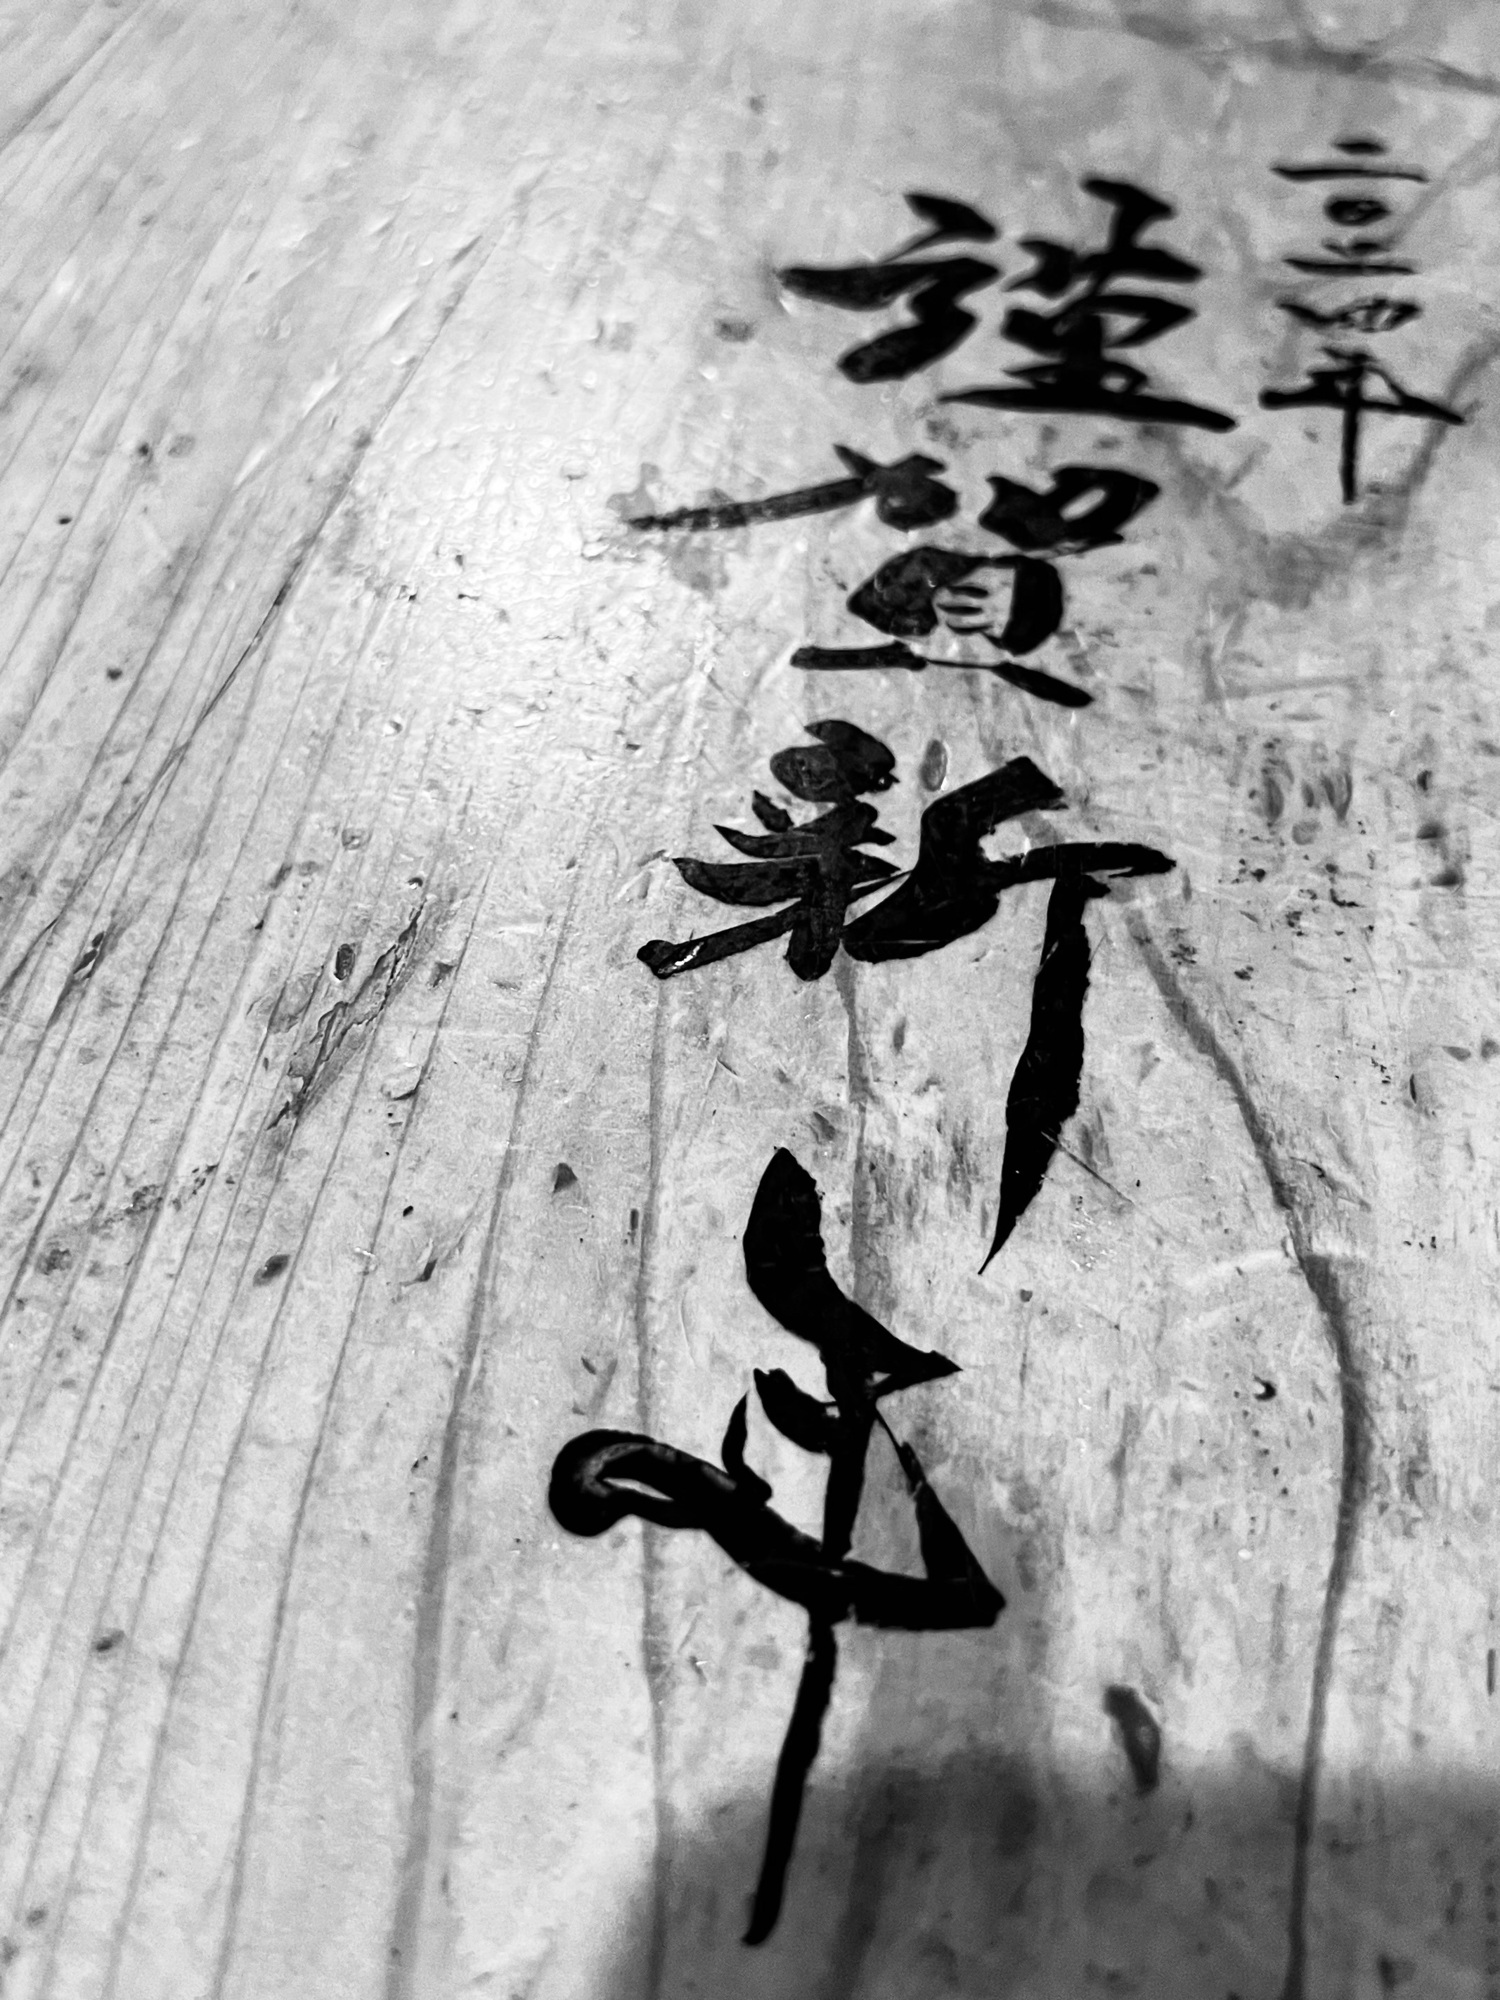 二〇二四年
謹賀新年